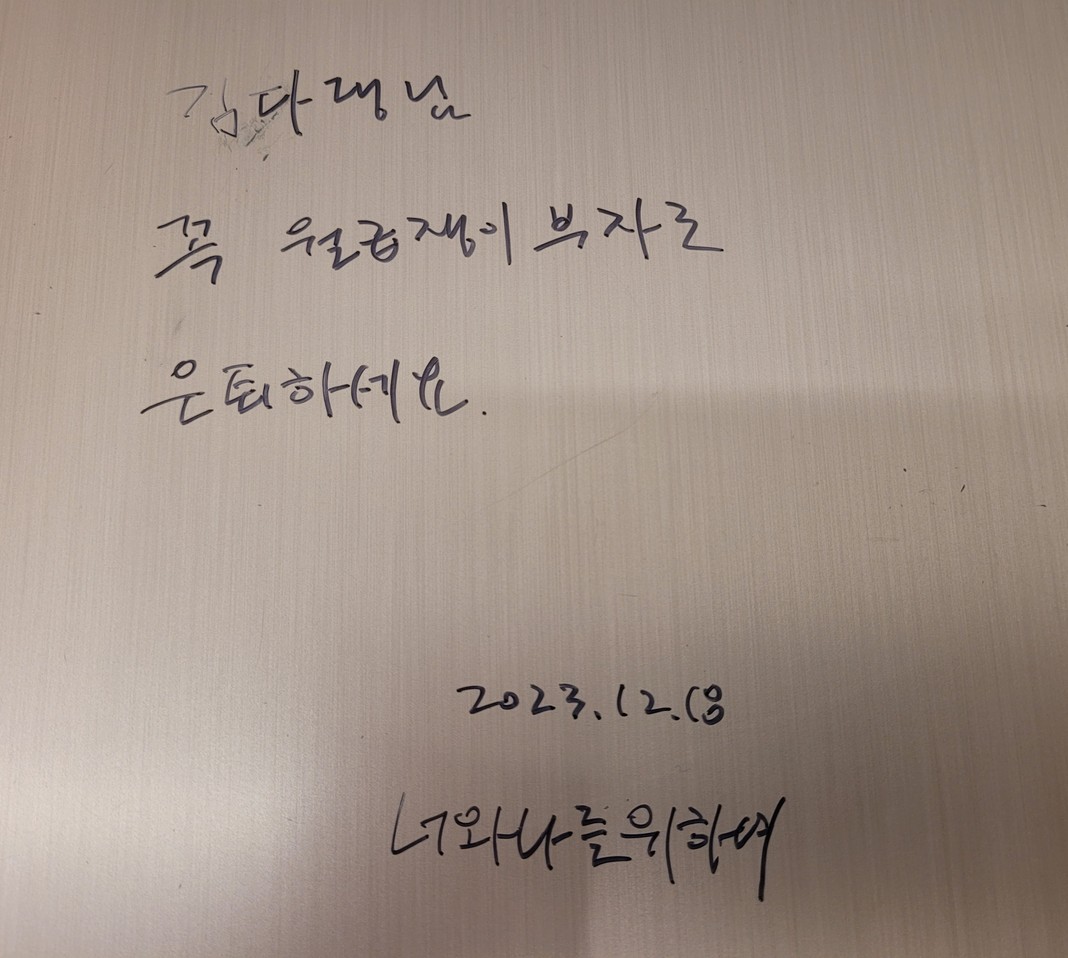 김다랭님
꼭 월급쟁이 부자로
은퇴하세요.
2023.12.18
너와나를위하여